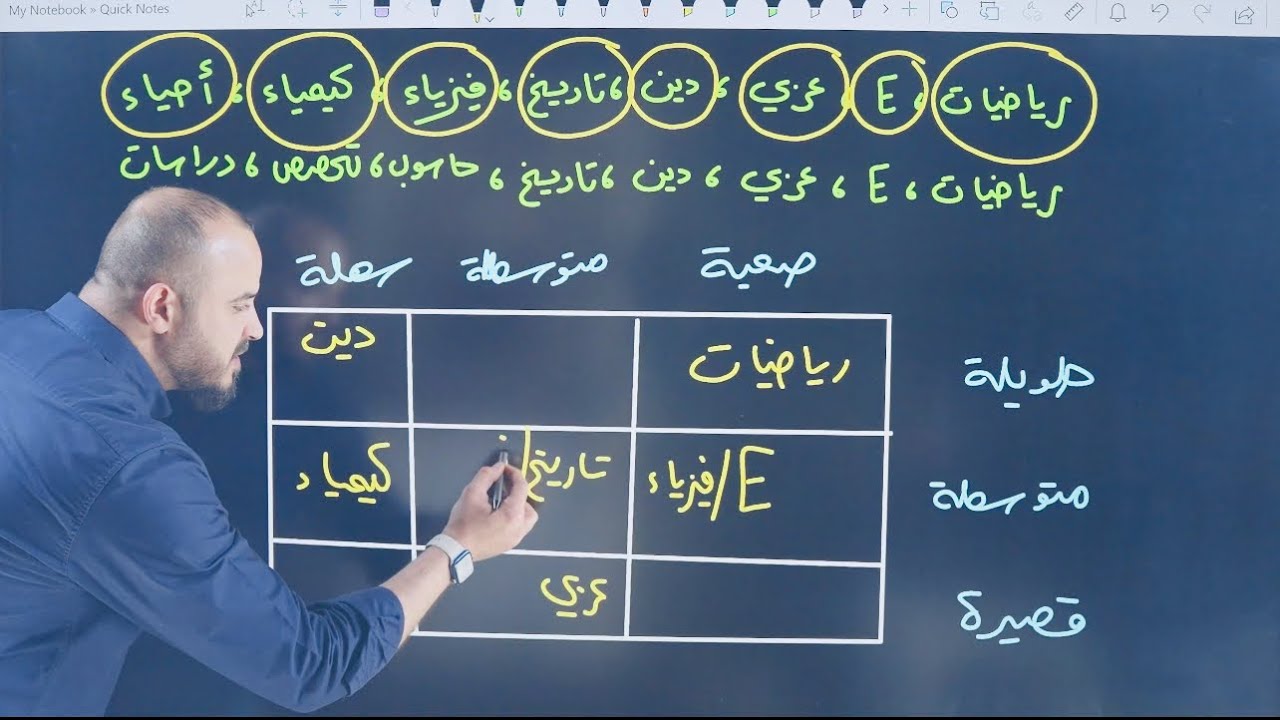 My Notebook » Quick Notes
رياضيات ، E ، عربي ، دين ، تاريخ ، فيزياء ، كيمياء ، أحياء
رياضيات ، E ، عربي ، دين ، تاريخ ، حاسوب ، تخصص ، دراسات
صعبة متوسطة سهلة
طويلة رياضيات دين
متوسطة E/فيزياء تاريخ/ كيمياء
قصيرة عربي